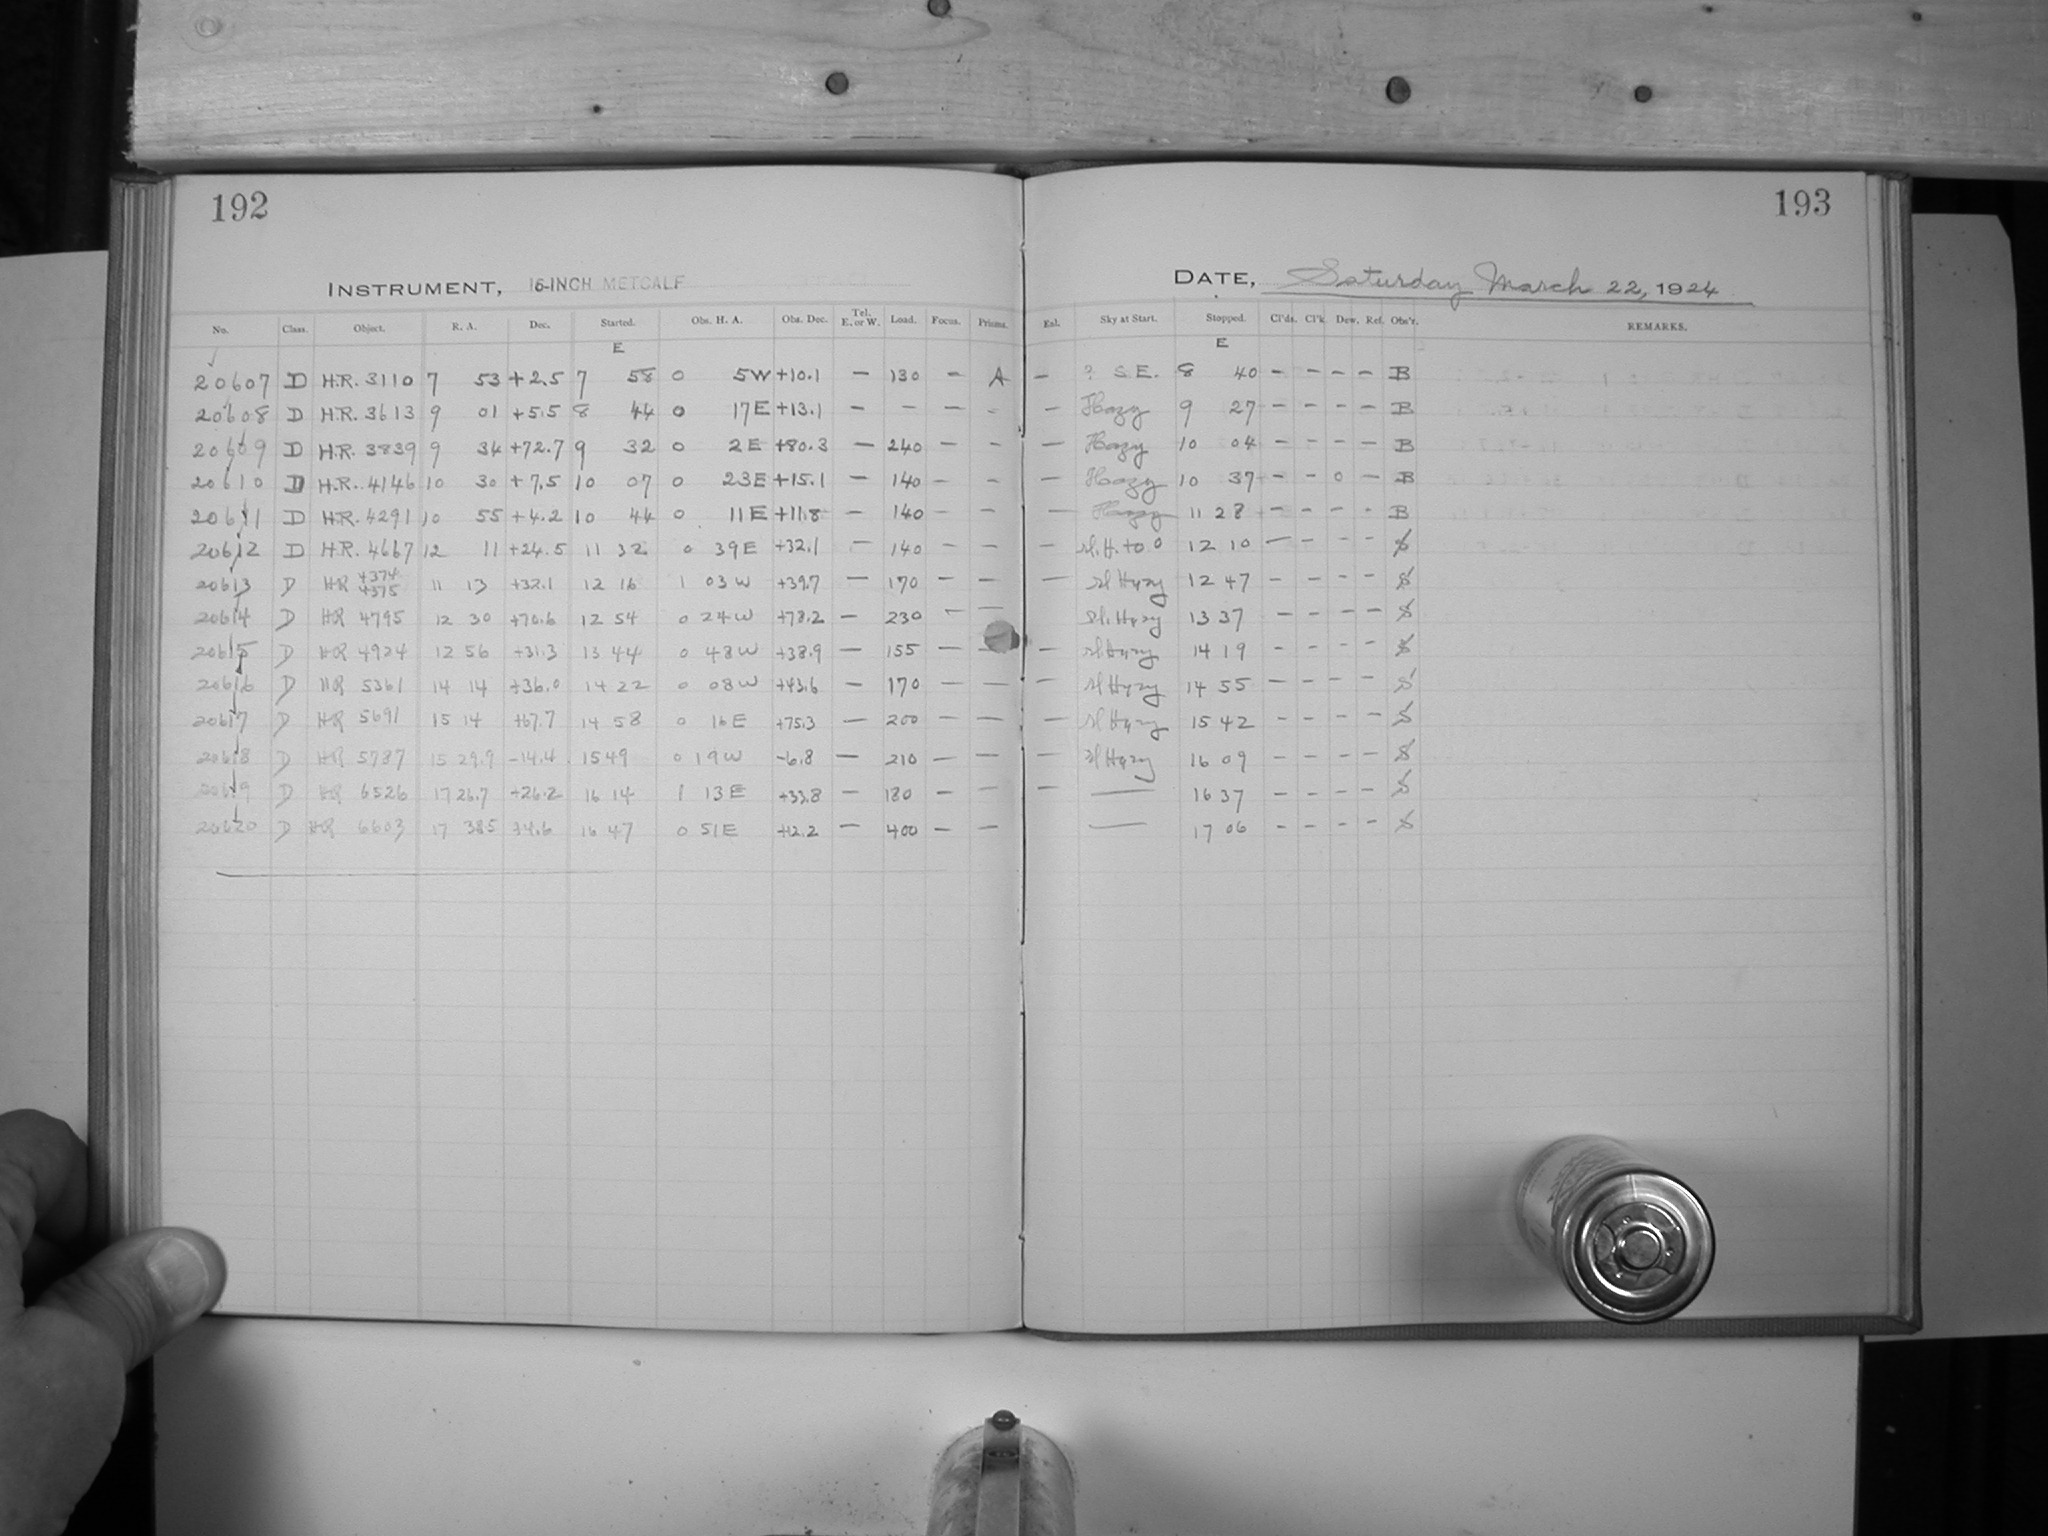 192
193
INSTRUMENT, 16-INCH METCALF
DATE, Saturday March 22, 1924
No. Class. Object. R. A. Dec. Started. Obs. H. A. Obs. Dec. Tel. E. or W. Load. Focus. Prisms. Exl. Sky at Start. Stopped. Cl'ds. Cl'k. Dew. Ref. Obs'r. REMARKS.
E E
20607 D H.R. 3110 7 53 +2.5 7 58 0 5W +10.1 — 130 - A — ? S.E. 8 40 - - - - B
20608 D H.R. 3613 9 01 +5.5 8 44 0 17E +13.1 - - - - — Hazy 9 27 - - - - B
20609 D H.R. 3839 9 34 +72.7 9 32 0 2E +80.3 — 240 - - — Hazy 10 04 - - - - B
20610 D H.R. 4146 10 30 +7.5 10 07 0 23E +15.1 - 140 - - — Hazy 10 37 - - 0 - B
20611 D H.R. 4291 10 55 +4.2 10 44 0 11E +11.8 - 140 - - — Hazy 11 28 - - - - B
20612 D H.R. 4667 12 11 +24.5 11 32 0 39E +32.1 — 140 - - — sl. H. to 0 12 10 — - - - S
20613 D HR 4374 4375 11 13 +32.1 12 16 1 03W +39.7 — 170 - — — sl Hazy 12 47 - - - - S
20614 D HR 4795 12 30 +70.6 12 54 0 24W +78.2 — 230 - — sl. Hazy 13 37 - - - - S
20615 D HR 4924 12 56 +31.3 13 44 0 48W +38.9 — 155 — — — sl Hazy 14 19 - - - - S
20616 D HR 5361 14 14 +36.0 14 22 0 08W +43.6 — 170 — — — sl Hazy 14 55 - - - - S
20617 D HR 5691 15 14 +67.7 14 58 0 16E +75.3 — 200 — — — sl Hazy 15 42 - - - - S
20618 D HR 5787 15 29.9 -14.4 15 49 0 19W -6.8 — 210 — — — sl Hazy 16 09 - - - - S
20619 D HR 6526 17 26.7 +26.2 16 14 1 13E +33.8 — 180 — — — — 16 37 - - - - S
20620 D HR 6603 17 38.5 +4.6 16 47 0 51E +12.2 — 400 — — — 17 06 - - - - S